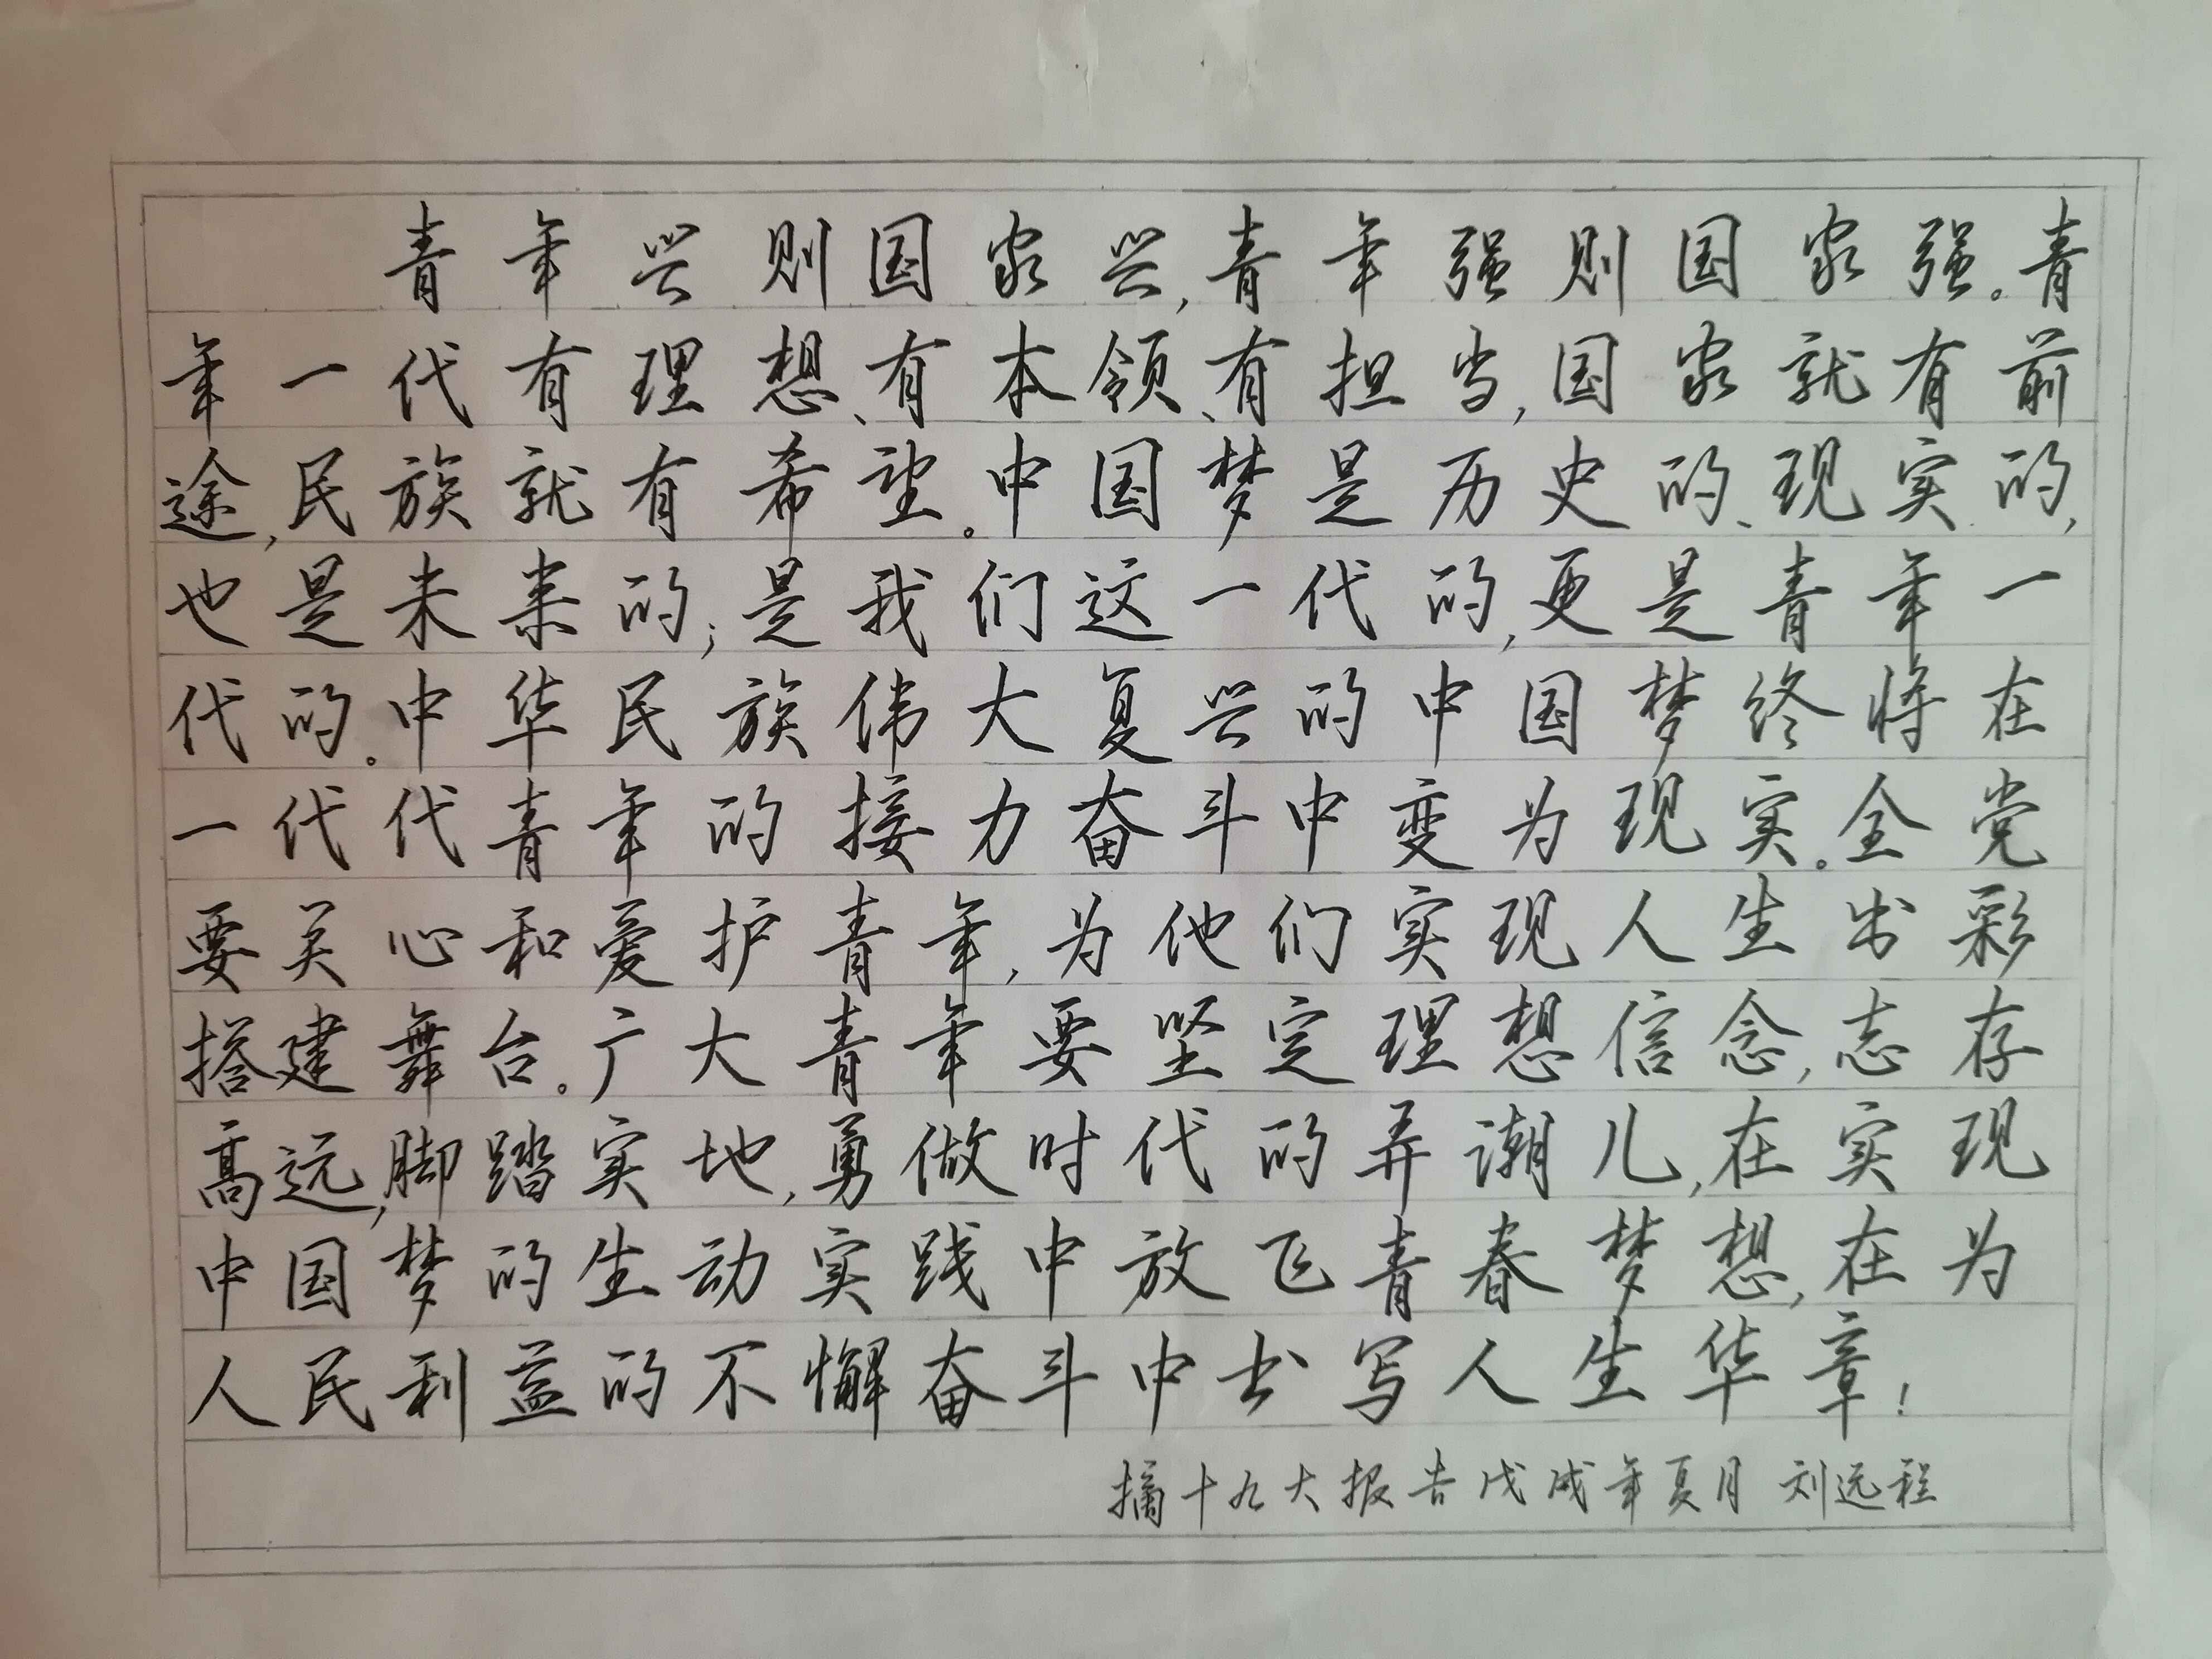 青年兴则国家兴,青年强则国家强。青
年一代有理想、有本领、有担当,国家就有前
途,民族就有希望。中国梦是历史的、现实的,
也是未来的;是我们这一代的,更是青年一
代的。中华民族伟大复兴的中国梦终将在
一代代青年的接力奋斗中变为现实。全党
要关心和爱护青年,为他们实现人生出彩
搭建舞台。广大青年要坚定理想信念,志存
高远,脚踏实地,勇做时代的弄潮儿,在实现
中国梦的生动实践中放飞青春梦想,在为
人民利益的不懈奋斗中书写人生华章!
摘十九大报告戊戌年夏月 刘远程